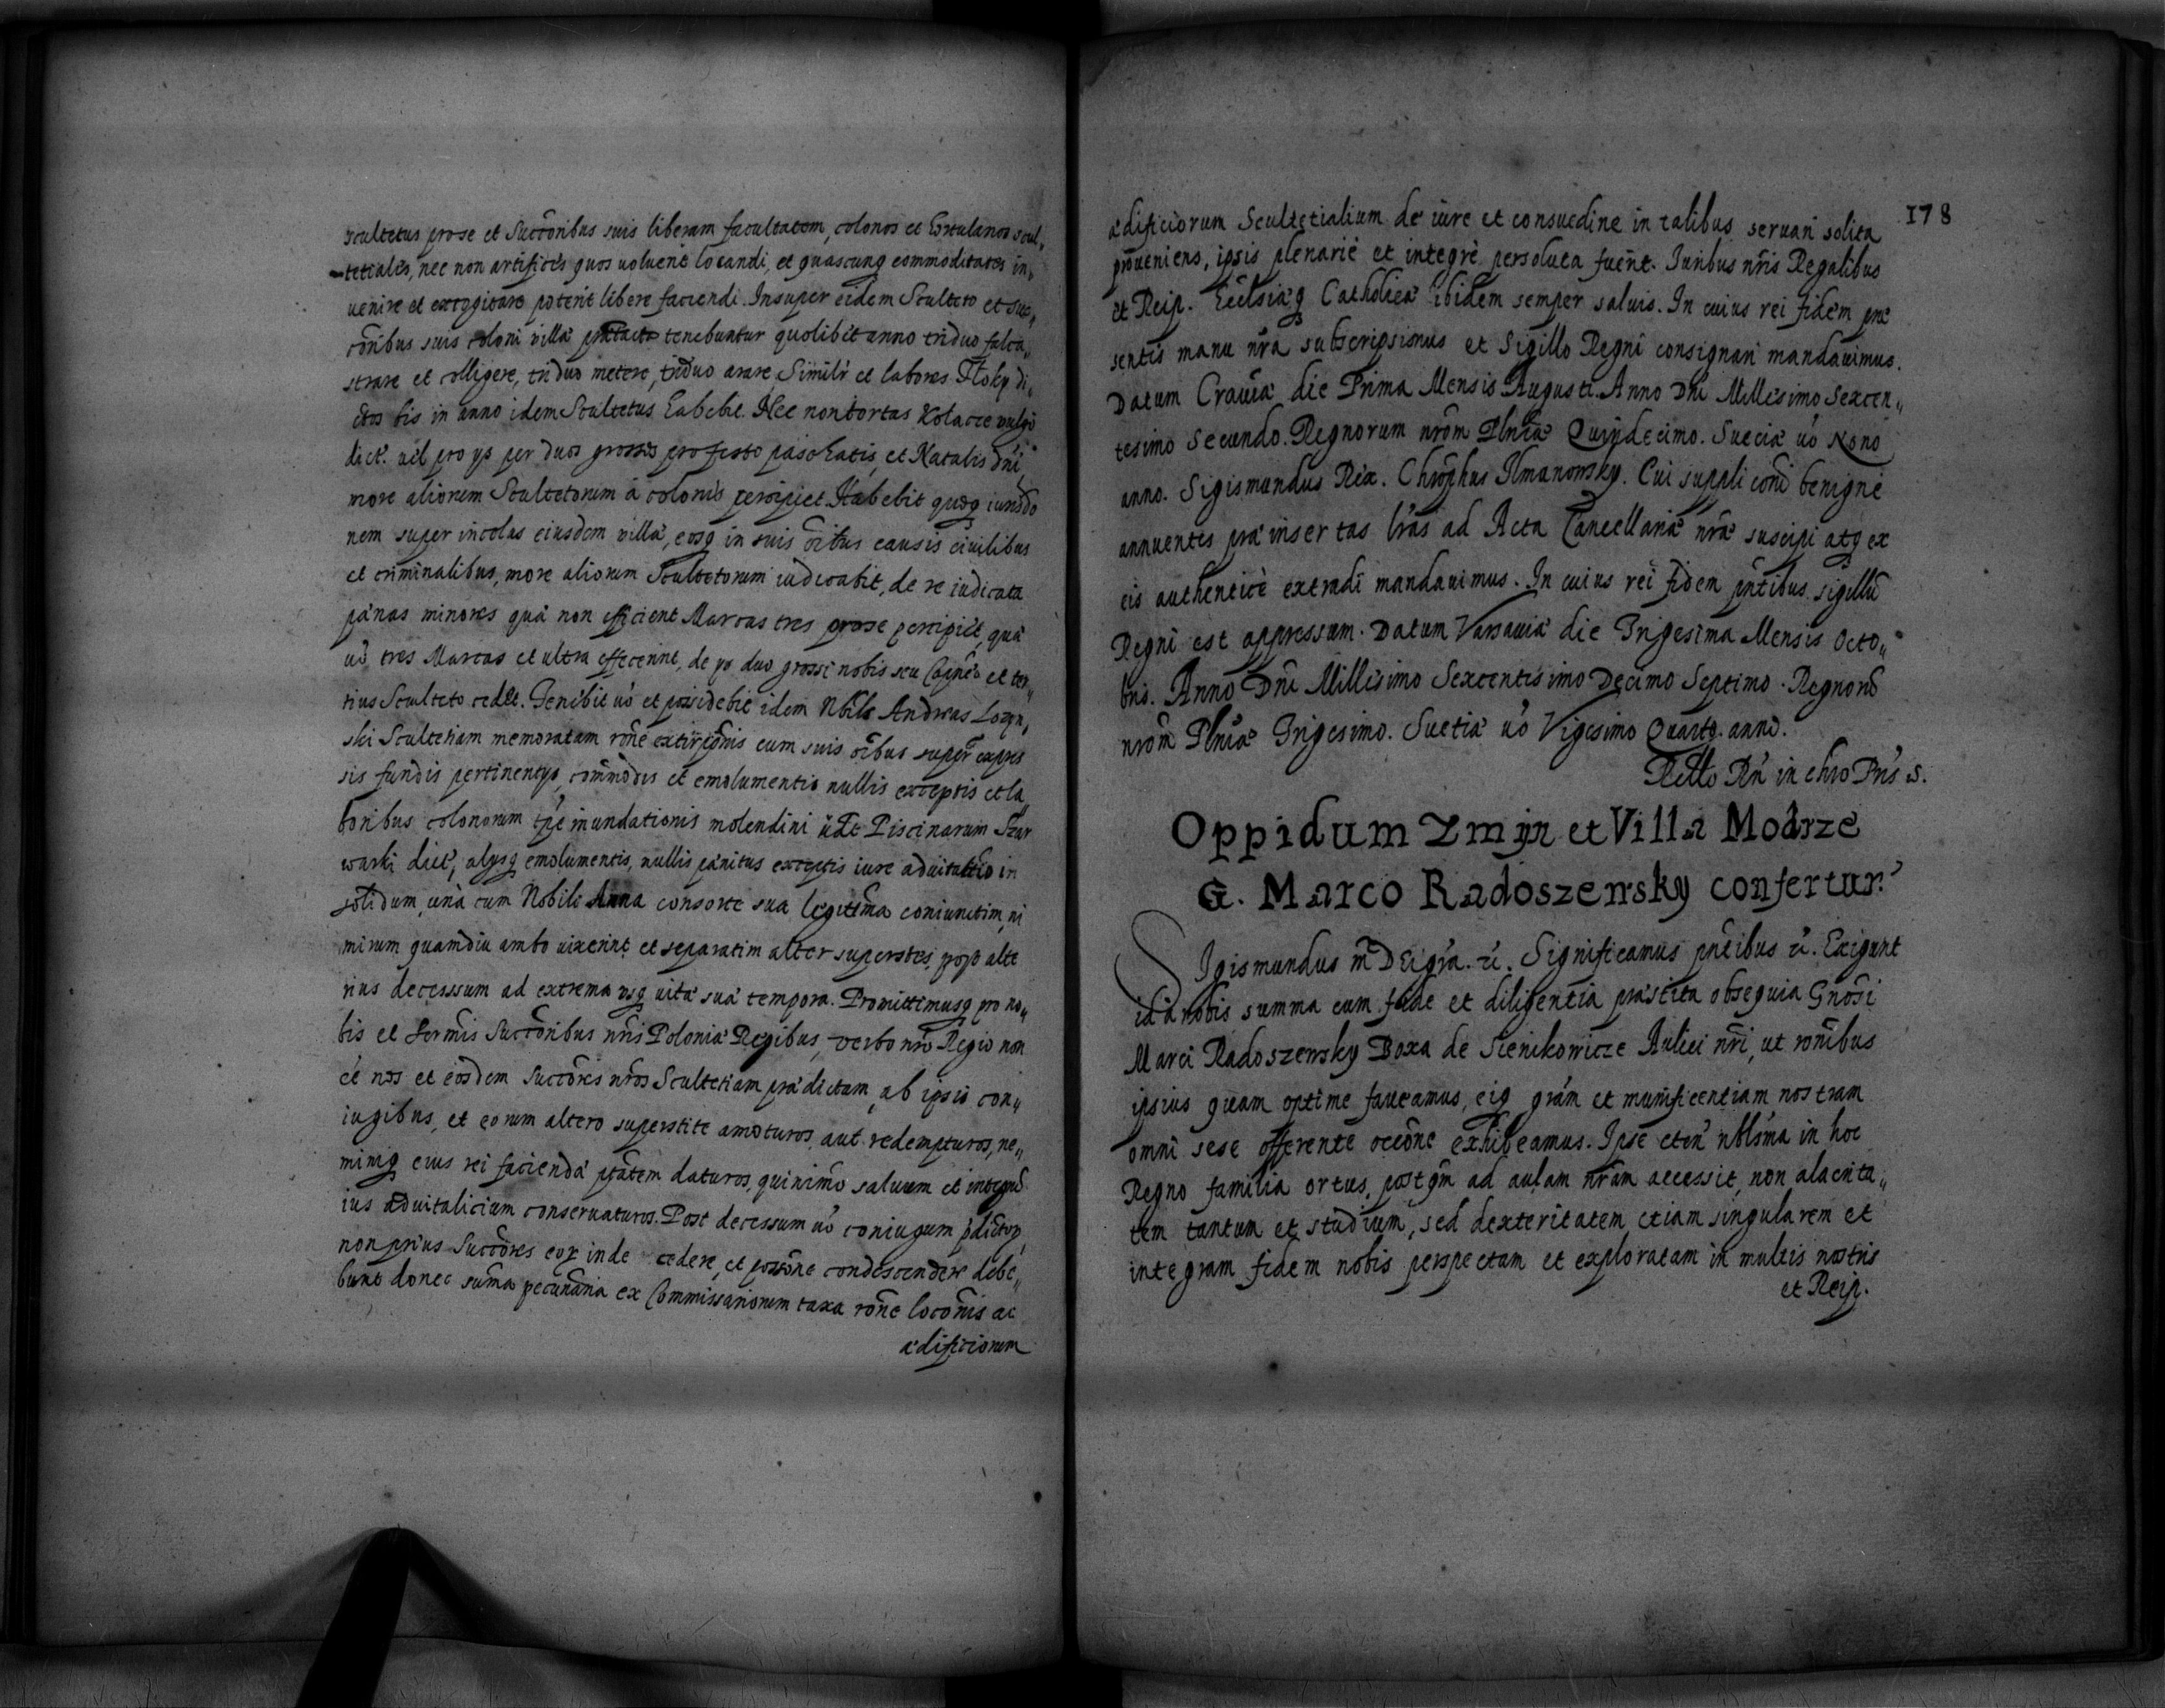 scultetus pro se et Succõribus suis liberam facultatem, colonos et hortulanos scul„
tetiales, nec non artifices quos voluerit locandi, et quascunq commoditates in„
venire et excogitare poterit libere faciendi. Insuper eidem Sculteto et suc„
cõribus suis coloni villæ tenebuntur quolibet anno triduo falca„
strare et colligere, triduo metere, triduo arare, Similr et labores Tłoky di„
ctos bis in anno idem Scultetus habebit. Nec non tortas Kolacze vulgo
dict. vel pro ys per duos grosses pro festo paschatis, et Natalis Dni
more aliorum Scultetorum a colonis percipiet. Habebit quoq iurisdo
nem super incolas eiusdem villæ, eosq in suis oĩbus causis civilibus
et criminalibus, more aliorum Scultetorum iudicabit, de re iudicata
pænas minores quæ non efficient Marcas tres pro se percipiet, quæ
vo tres Marcas et ultra effecerint, de ys duo grossi nobis seu et ter„
tius Sculteto cedet. Tenebit vo et possidebit idem Nbilis Andreas
ski Scultetiam memoratam rõne suis oĩbus super expres
sis fundis pertinentys, cõmodis et emolumentis nullis exceptis et la„
boribus colonorum tpe inundationis molendini Piscinarum Szar
warki dict, alysq emolumentis, nullis pænitus exceptis iure advitalitio in
solidum, una cum Nobili Anna consorte sua legitima coniunctim, ni
mirum quamdiu ambo vixerint et separatim alter superstes, post alte
rius decesssum ad extrema usq vitæ suæ tempora. Promittimusq pro no„
bis et Sermis Succõribus nris Poloniæ Regibus, verbo nro Regio non
ee nos et eosdem Succõres nros Scultetiam prædictam, ab ipsis con„
iugibus, et eorum altero superstite amoturos, aut redempturos, ne„
miniq eius rei faciendæ ptatem daturos, quinimo salvum et integrũ
ius advitalicium conservaturos. Post decessum vo coniugum
non prius Succõres eor inde cedere, et possõne condescendere debe„
bunt donec suma pecuniaria ex Commissariorum taxa rõne locõnis ac
ædificiorum
178
ædificiorum Scultetialium de iure et consuedine in talibus servari solita
proveniens, ipsis plenarie et integre persoluta fuerit. Iuribus nris Regalibus
et Reip. Ecclsiæq Catholicæ ibidem semper salvis. In cuius rei fidem præ
sentis manu nra subscripsimus et Sigillo Regni consignari mandavimus.
Datum Cracoviæ die Prima Mensis Augusti. Anno Dni Millesimo Sexcen„
tesimo Secundo. Regnorum nrom Plniæ Quindecimo. Sueciæ vo Nono
anno. Sigismundus Rex. Chrophus Ilmanowsky. Cui supplicõni benigne
annuentes præinsertas lras ad Acta Cancellariæ nræ suscipi atq ex
eis authentice extradi mandavimus. In cuius rei fidem pntibus sigillũ
Regni est appressum. Datum Varsaviæ die Trigesima Mensis Octo„
bris. Anno Dni Millesimo Sexcentesimo Decimo Septimo. Regnorũ
nrom Plniæ Trigesimo. Suetiæ vo Vigesimo Quarto. anno.
Oppidum Zmyn et Villa Modrze
G. Marco Radoszewsky confertur.
Sigismundus III DEi gra. Significamus pntibus. Exigunt
id a nobis summa cum fide et diligentia præstita obsequia Gnosi
Marci Radoszewsky Boxa de Sienikowicze Aulici nri, ut rõnibus
ipsius quam optime faveamus, eiq gram et munificentiam nostram
omni sese offerente occõne exhibeamus. Ipse eten nblsma in hoc
Regno familia ortus, postqm ad aulam nram accessit, non alacrita„
tem tantum et studium, sed dexteritatem etiam singularem et
integram fidem nobis perspectam et exploratam in multis nostris
et Reip.